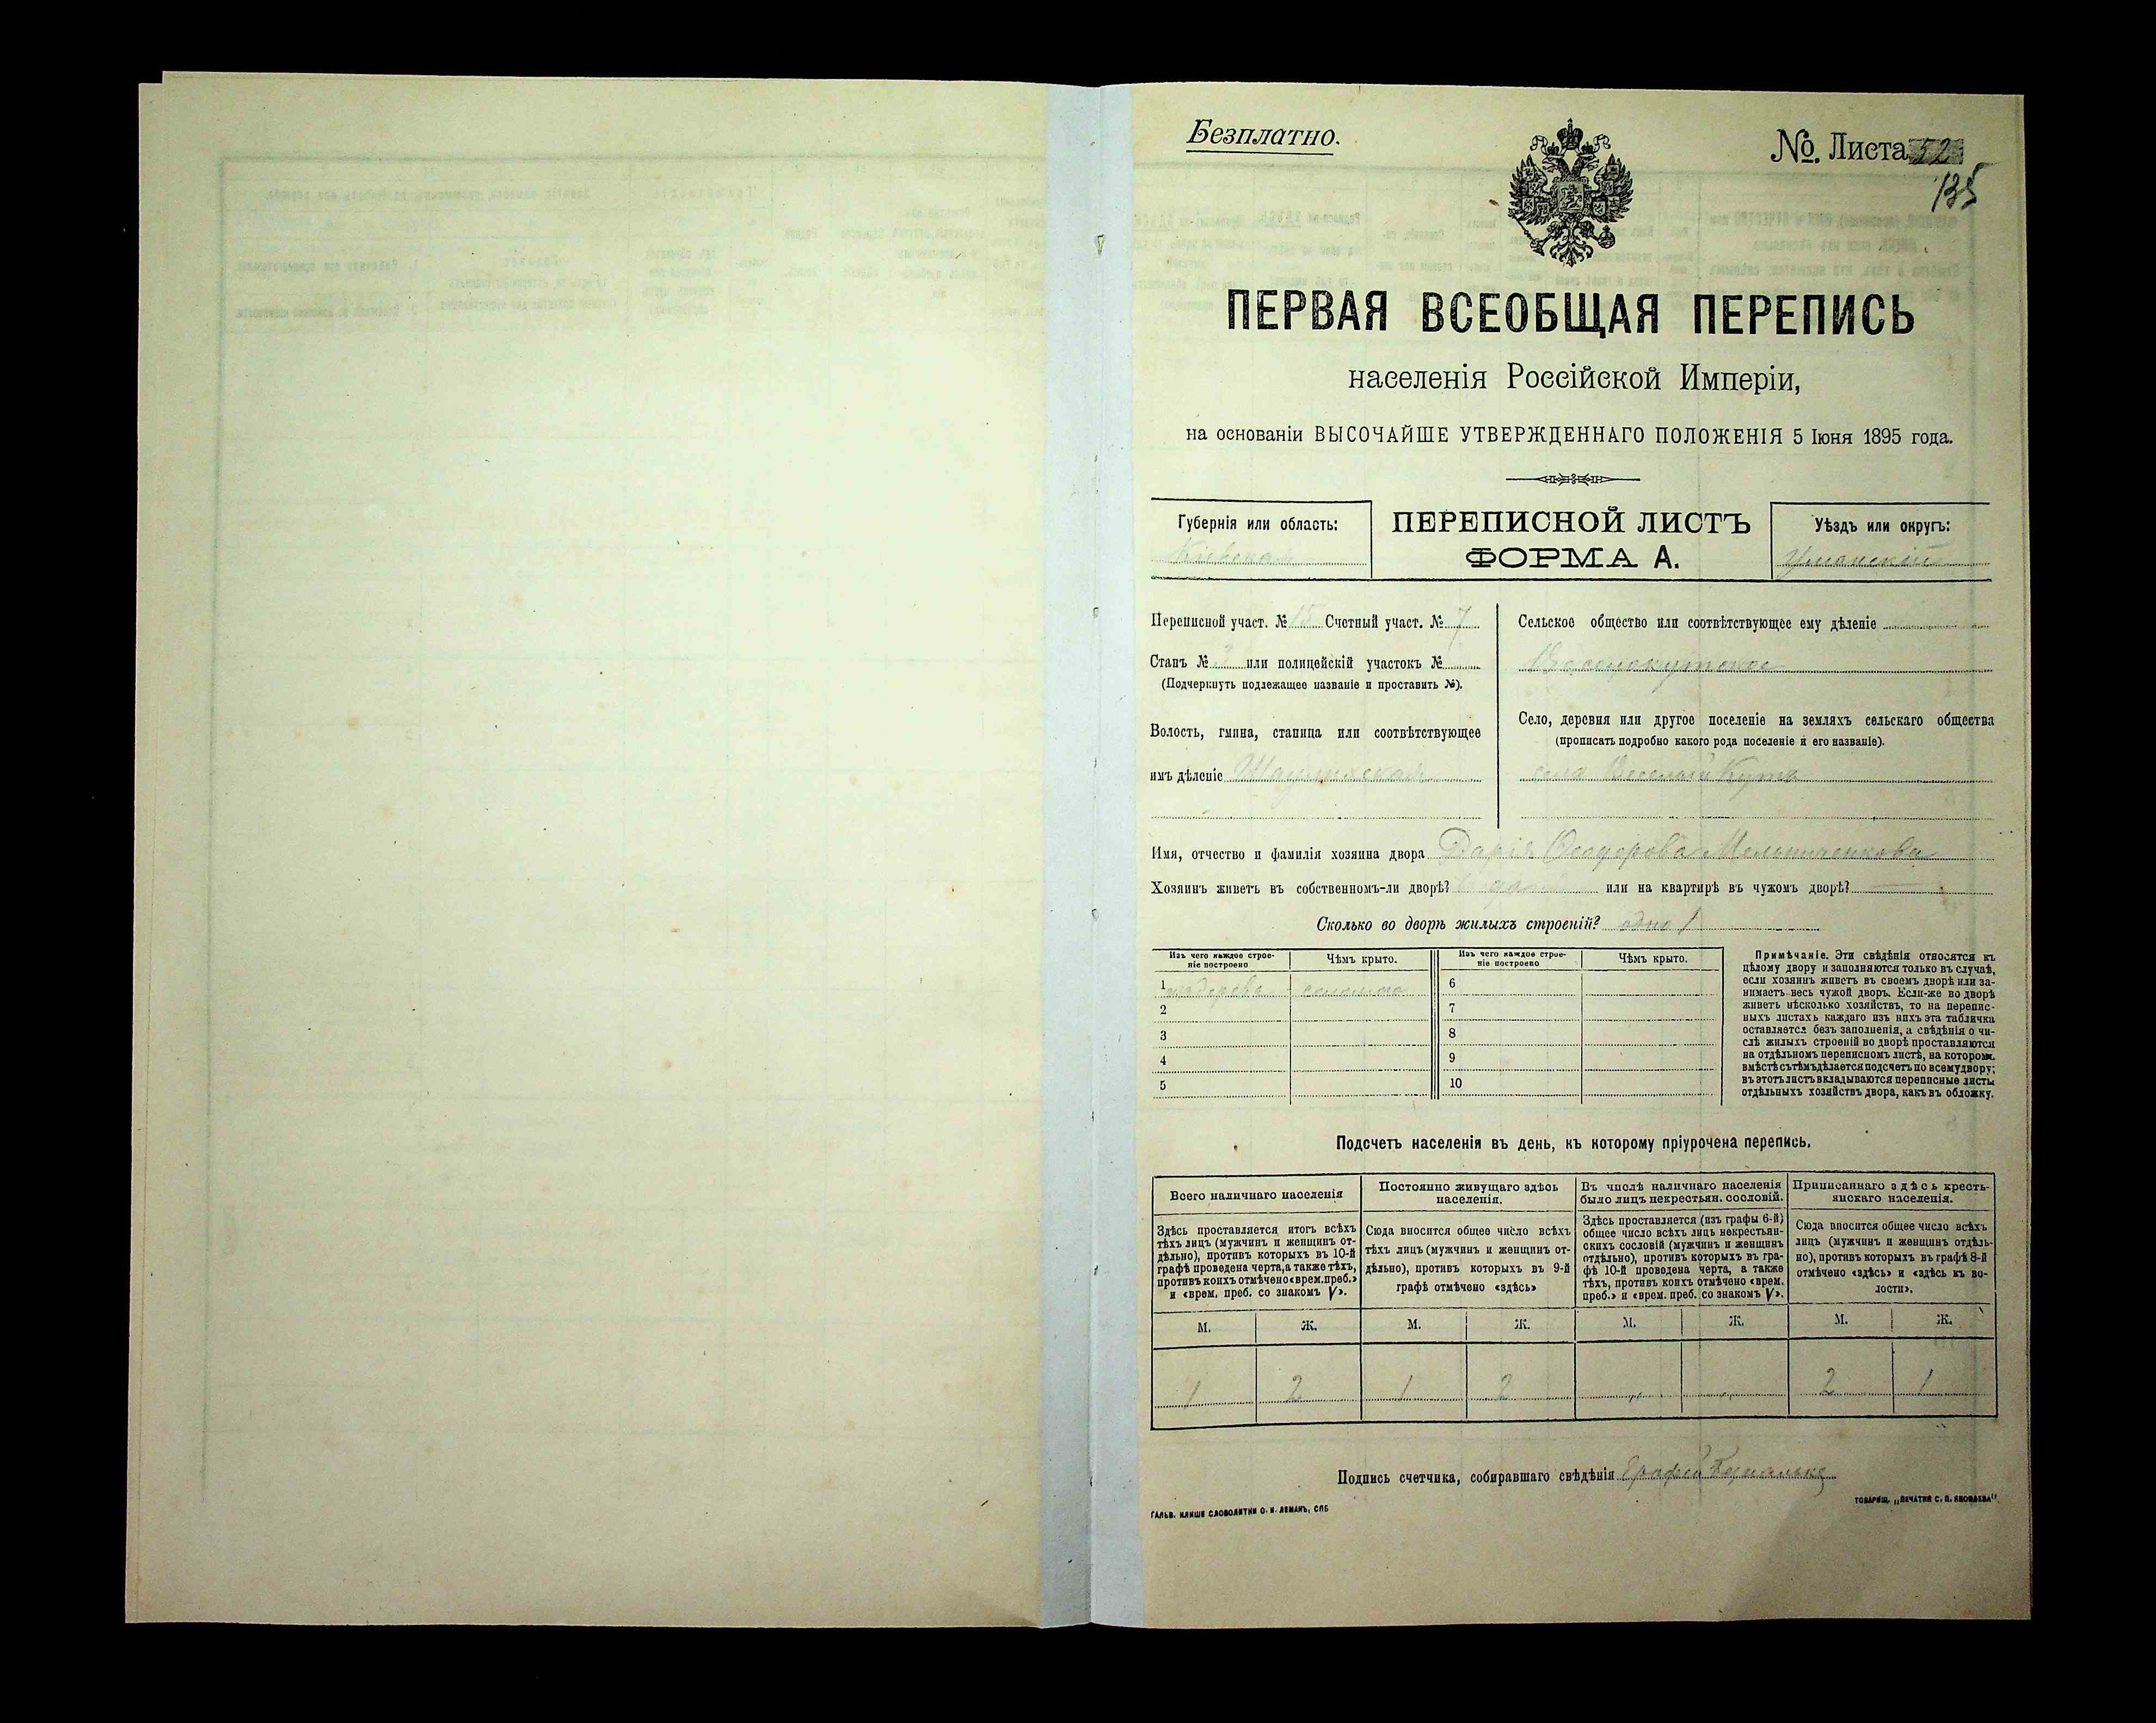 Безплатно.
№. Листа 52
135
ПЕРВАЯ ВСЕОБЩАЯ ПЕРЕПИСЬ
населенія Россійской Имперіи,
на основаніи ВЫСОЧАЙШЕ УТВЕРЖДЕННАГО ПОЛОЖЕНІЯ 5 Іюня 1895 года.
Губернія или область:
Кіевская
ПЕРЕПИСНОЙ ЛИСТЪ
ФОРМА А.
Уѣздъ или округъ:
Уманскій
Переписной участ. № 15 Счетный участ. № 7
Станъ № или полицейскій участокъ №
(Подчеркнуть подлежащее названіе и проставить №).
Волость, гмина, станица или соотвѣтствующее
имъ дѣленіе
Сельское общество или соотвѣтствующее ему дѣленіе
Веселокутское
Село, деревня или другое поселеніе на земляхъ сельскаго общества
(прописать подробно какого рода поселеніе и его названіе).
село Веселый Кутъ
Имя, отчество и фамилія хозяина двора Дарія Ѳеодорова Мельниченкова
Хозяинъ живетъ въ собственномъ-ли дворѣ? или на квартирѣ въ чужомъ дворѣ? —
Сколько во дворѣ жилыхъ строеній? одно 1
Изъ чего каждое строе-
ніе построено
Чѣмъ крыто.
Изъ чего каждое строе-
ніе построено
Чѣмъ крыто.
1 дерева соломою
6
2
7
3
8
4
9
5
10
Примѣчаніе. Эти свѣдѣнія относятся къ
цѣлому двору и заполняются только въ случаѣ,
если хозяинъ живетъ въ своемъ дворѣ или за-
нимаетъ весь чужой дворъ. Если-же во дворѣ
живетъ нѣсколько хозяйствъ, то на перепис-
ныхъ листахъ каждаго изъ нихъ эта табличка
оставляется безъ заполненія, а свѣдѣнія о чи-
слѣ жилыхъ строеній во дворѣ проставляются
на отдѣльномъ переписномъ листѣ, на котором
вмѣстѣ съ тѣмъ дѣлается подсчетъ по всему двору;
въ этотъ листъ вкладываются переписные листы
отдѣльныхъ хозяйствъ двора, какъ въ обложку.
Подсчетъ населенія въ день, къ которому пріурочена перепись.
Всего наличнаго населенія
Постоянно живущаго здѣсь
населенія.
Въ числѣ наличнаго населенія
было лицъ некрестьян. сословій.
Приписаннаго здѣсь кресть-
янскаго населенія.
Здѣсь проставляется итогъ всѣхъ
тѣхъ лицъ (мужчинъ и женщинъ от-
дѣльно), противъ которыхъ въ 10-й
графѣ проведена черта, а также тѣхъ,
противъ коихъ отмѣчено «врем. преб.»
и «врем. преб. со знакомъ V».
Сюда вносится общее число всѣхъ
тѣхъ лицъ (мужчинъ и женщинъ от-
дѣльно), противъ которыхъ въ 9-й
графѣ отмѣчено «здѣсь»
Здѣсь проставляется (изъ графы 6-й)
общее число всѣхъ лицъ некрестьян-
скихъ сословій (мужчинъ и женщинъ
отдѣльно), противъ которыхъ въ гра-
фѣ 10-й проведена черта, а также
тѣхъ, противъ коихъ отмѣчено «врем.
преб.» и «врем. преб. со знакомъ V».
Сюда вносится общее число всѣхъ
лицъ (мужчинъ и женщинъ отдѣль-
но), противъ которыхъ въ графѣ 8-й
отмѣчено «здѣсь» и «здѣсь въ во-
лости».
М. Ж. М. Ж. М. Ж. М. Ж.
1 2 1 2 2 1
Подпись счетчика, собиравшаго свѣдѣнія
ГАЛЬВ. КЛИШЕ СЛОВОЛИТНИ О. И. ЛЕМАНЪ, СПБ
ТОВАРИЩ. „ПЕЧАТНЯ С. П. ЯКОВЛЕВА"